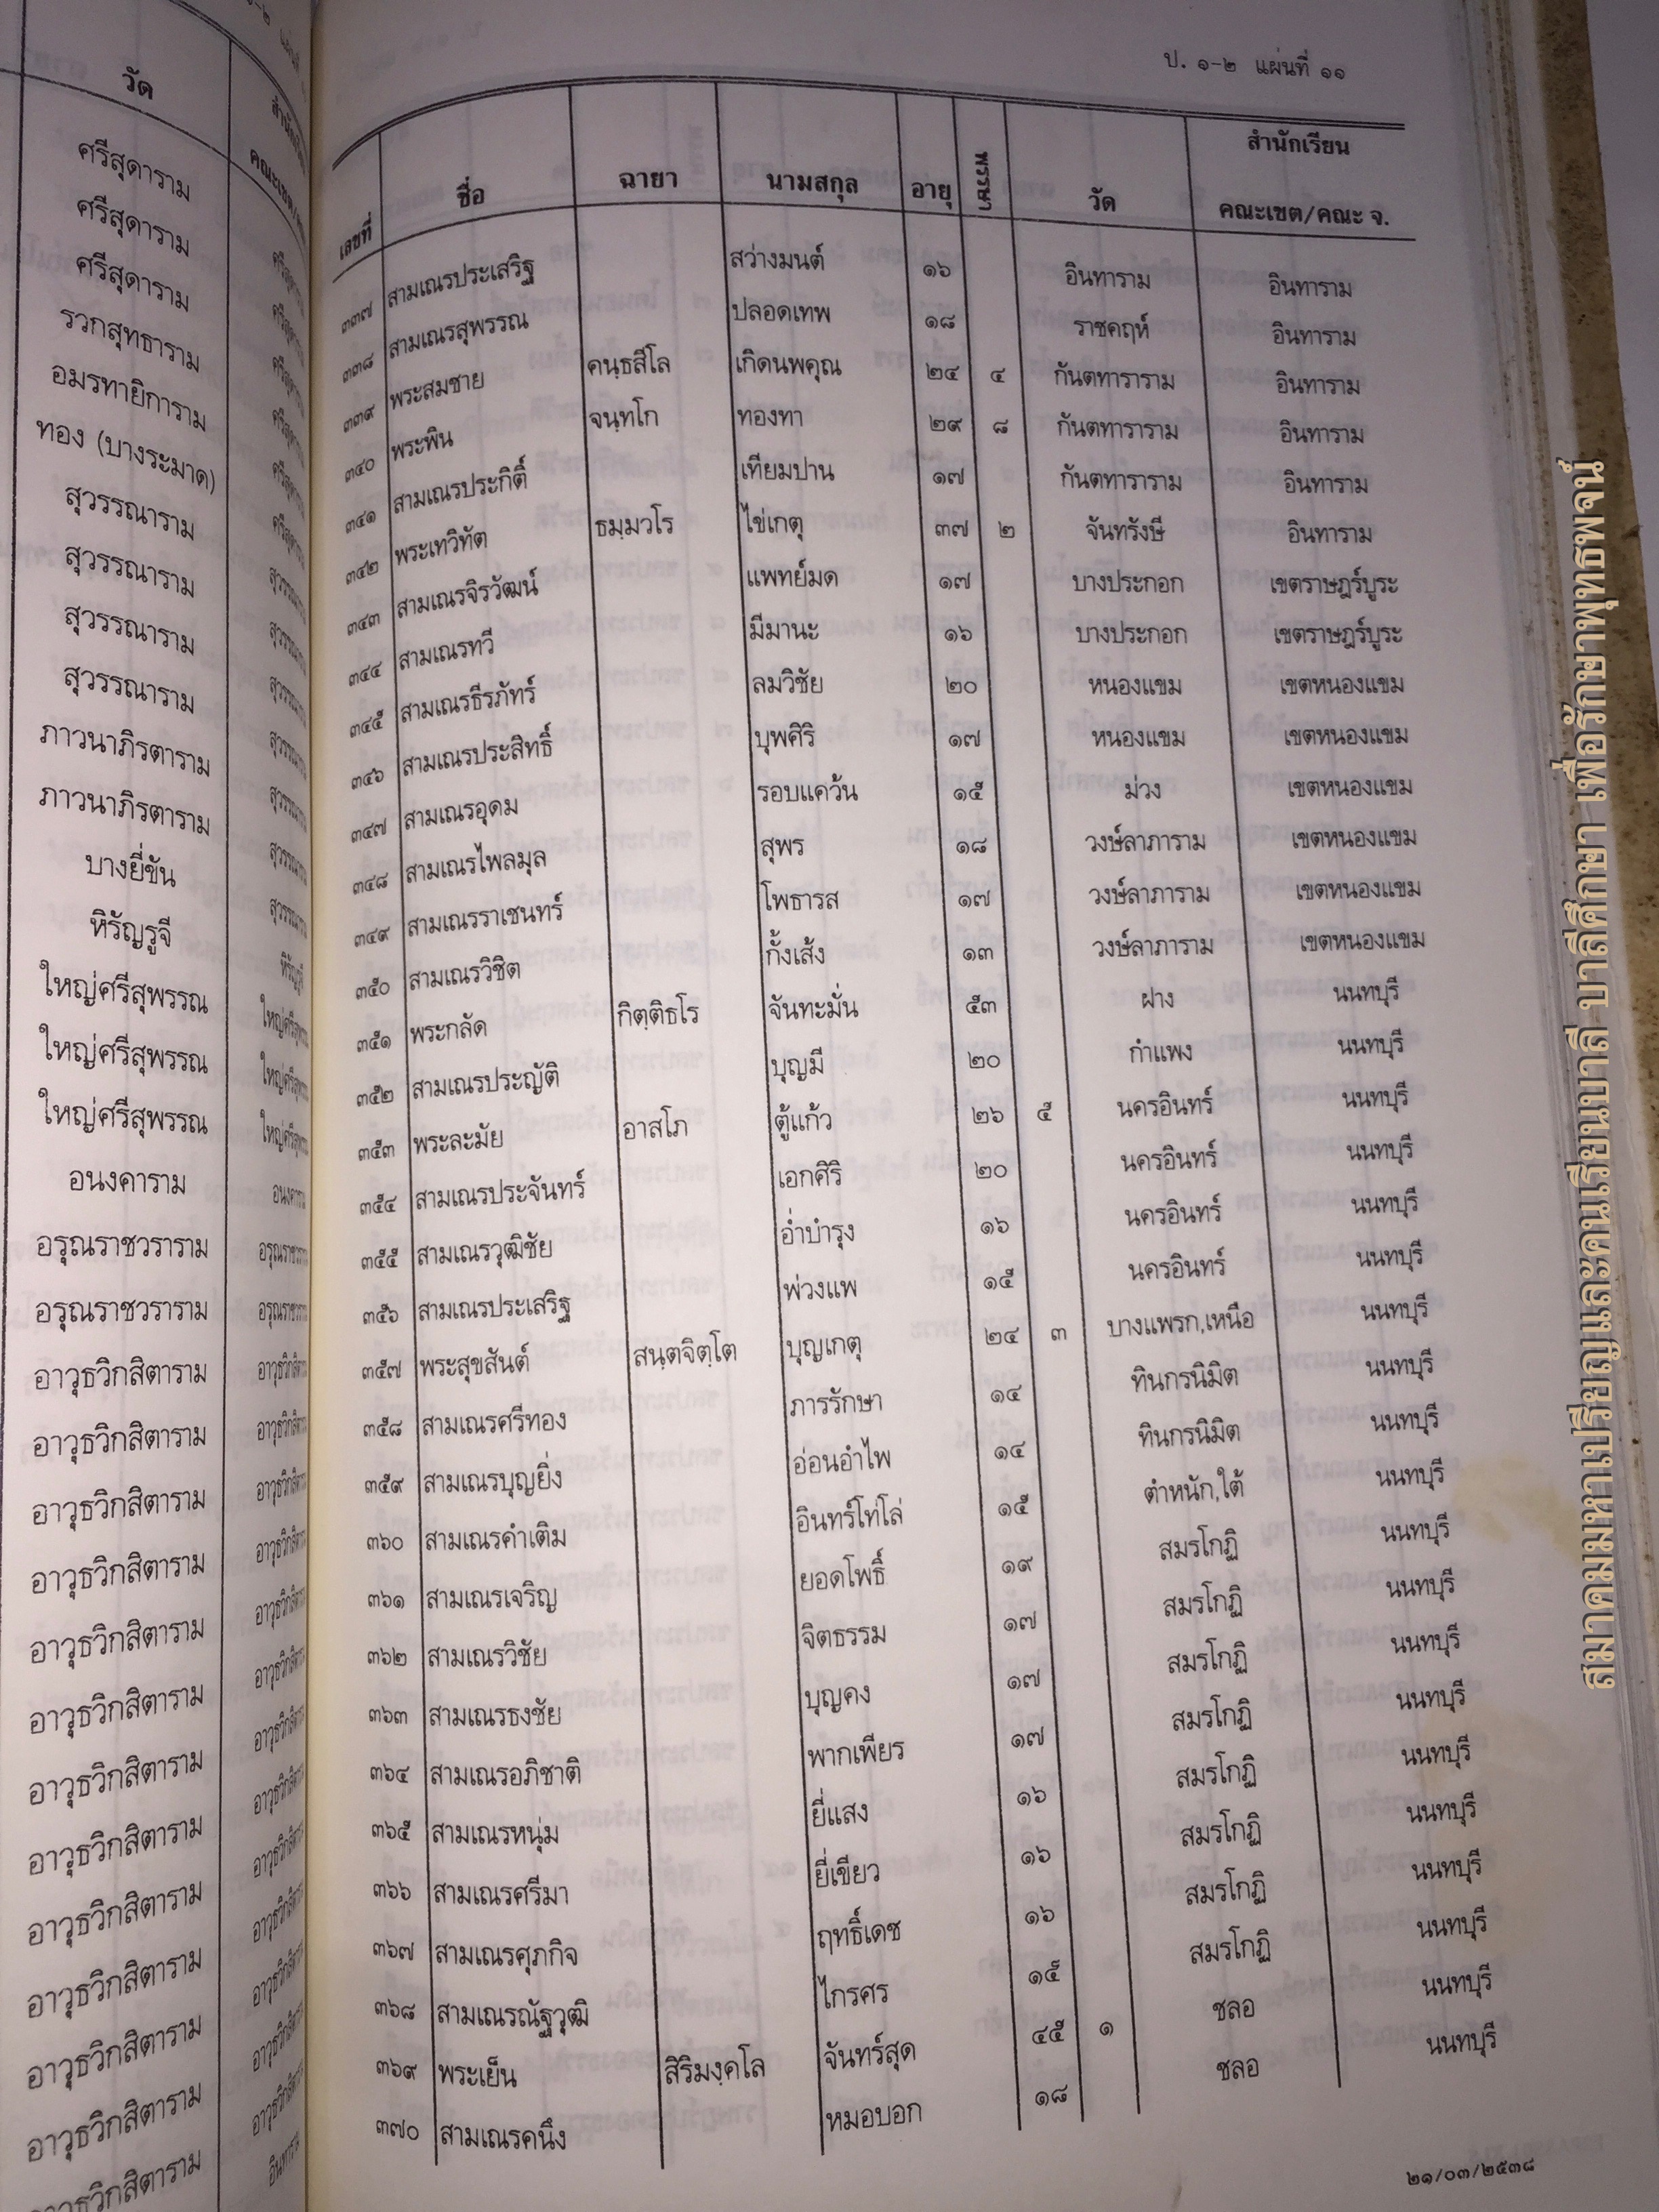 วัด
ศรีสุดาราม
ศรีสุดาราม
ศรีสุดาราม
รวกสุทธาราม
อมรทายิการาม
ทอง (บางระมาด)
สุวรรณาราม
สุวรรณาราม
สุวรรณาราม
สุวรรณาราม
ภาวนาภิรตาราม
ภาวนาภิรตาราม
บางยี่ขัน
หิรัญรูจี
ใหญ่ศรีสุพรรณ
ใหญ่ศรีสุพรรณ
ใหญ่ศรีสุพรรณ
อนงคาราม
อรุณราชวราราม อรุณราชวราราม
อรุณราชวราราม อรุณราชวราราม
อาวุธวิกสิตาราม
อาวุธวิกสิตาราม
อาวุธวิกสิตาราม
อาวุธวิกสิตาราม
อาวุธวิกสิตาราม
อาวุธวิกสิตาราม
อาวุธวิกสิตาราม
อาวุธวิกสิตาราม
อาวุธวิกสิตาราม
อาวุธวิกสิตาราม
อาวุธวิกสิตาราม
อาวุธวิกสิตาราม
อาวุธวิกสิตาราม
ป. ๑-๒ แผ่นที่ ๑๑
เลขที่ ชื่อ ฉายา นามสกุล อายุ พรรษา วัด สำนักเรียน
คณะเขต/คณะ จ.
๓๓๗ สามเณรประเสริฐ สว่างมนต์ ๑๖ อินทาราม อินทาราม
๓๓๘ สามเณรสุพรรณ ปลอดเทพ ๑๘ ราชคฤห์ อินทาราม
๓๓๙ พระสมชาย คนฺธสีโล เกิดนพคุณ ๒๔ ๔ กันตทาราราม อินทาราม
๓๔๐ พระพิน จนฺทโก ทองทา ๒๙ ๘ กันตทาราราม อินทาราม
๓๔๑ สามเณรประกิติ์ เทียมปาน ๑๗ กันตทาราราม อินทาราม
๓๔๒ พระเทวิทัต ธมฺมวโร ไข่เกตุ ๓๗ ๒ จันทรังษี อินทาราม
๓๔๓ สามเณรจิรวัฒน์ แพทย์มด ๑๗ บางประกอก เขตราษฎร์บูระ
๓๔๔ สามเณรทวี มีมานะ ๑๖ บางประกอก เขตราษฎร์บูระ
๓๔๕ สามเณรธีรภัทร์ ลมวิชัย ๒๐ หนองแขม เขตหนองแขม
๓๔๖ สามเณรประสิทธิ์ บุพศิริ ๑๗ หนองแขม เขตหนองแขม
๓๔๗ สามเณรอุดม รอบแคว้น ๑๕ ม่วง เขตหนองแขม
๓๔๘ สามเณรไพลมุล สุพร ๑๘ วงษ์ลาภาราม เขตหนองแขม
๓๔๙ สามเณรราเชนทร์ โพธารส ๑๗ วงษ์ลาภาราม เขตหนองแขม
๓๕๐ สามเณรวิชิต กั้งเส้ง ๑๓ วงษ์ลาภาราม เขตหนองแขม
๓๕๑ พระกลัด กิตฺติธโร จันทะมั่น ๕๓ ฝาง นนทบุรี
๓๕๒ สามเณรประญัติ บุญมี ๒๐ กำแพง นนทบุรี
๓๕๓ พระละมัย อาสโภ ตู้แก้ว ๒๖ ๕ นครอินทร์ นนทบุรี
๓๕๔ สามเณรประจันทร์ เอกศิริ ๒๐ นครอินทร์ นนทบุรี
๓๕๕ สามเณรวุฒิชัย อ่ำบำรุง ๑๖ นครอินทร์ นนทบุรี
๓๕๖ สามเณรประเสริฐ พ่วงแพ ๑๕ นครอินทร์ นนทบุรี
๓๕๗ พระสุขสันต์ สนฺตจิตฺโต บุญเกตุ ๒๔ ๓ บางแพรก,เหนือ นนทบุรี
๓๕๘ สามเณรศรีทอง ภารรักษา ๑๔ ทินกรนิมิต นนทบุรี
๓๕๙ สามเณรบุญยิ่ง อ่อนอำไพ ๑๔ ทินกรนิมิต นนทบุรี
๓๖๐ สามเณรคำเติม อินทร์โทโล่ ๑๕ ตำหนัก,ใต้ นนทบุรี
๓๖๑ สามเณรเจริญ ยอดโพธิ์ ๑๙ สมรโกฏิ นนทบุรี
๓๖๒ สามเณรวิชัย จิตธรรม ๑๗ สมรโกฏิ นนทบุรี
๓๖๓ สามเณรธงชัย บุญคง ๑๗ สมรโกฏิ นนทบุรี
๓๖๔ สามเณรอภิชาติ พากเพียร ๑๗ สมรโกฏิ นนทบุรี
๓๖๕ สามเณรหนุ่ม ยี่แสง ๑๖ สมรโกฏิ นนทบุรี
๓๖๖ สามเณรศรีมา ยี่เขียว ๑๖ สมรโกฏิ นนทบุรี
๓๖๗ สามเณรศุภกิจ ฤทธิ์เดช ๑๖ สมรโกฏิ นนทบุรี
๓๖๘ สามเณรณัฐวุฒิ ไกรศร ๑๕ สมรโกฏิ นนทบุรี
๓๖๙ พระเย็น สิริมงฺคโล จันทร์สุด ๔๕ ๑ ชลอ นนทบุรี
๓๗๐ สามเณรคนึง หมอบอก ๑๘ ชลอ นนทบุรี
๒๑/๐๓/๒๕๓๘
สมาคมมหาเปรียญและคนเรียนบาลี บาลีศึกษา เพื่อรักษาพุทธพจน์